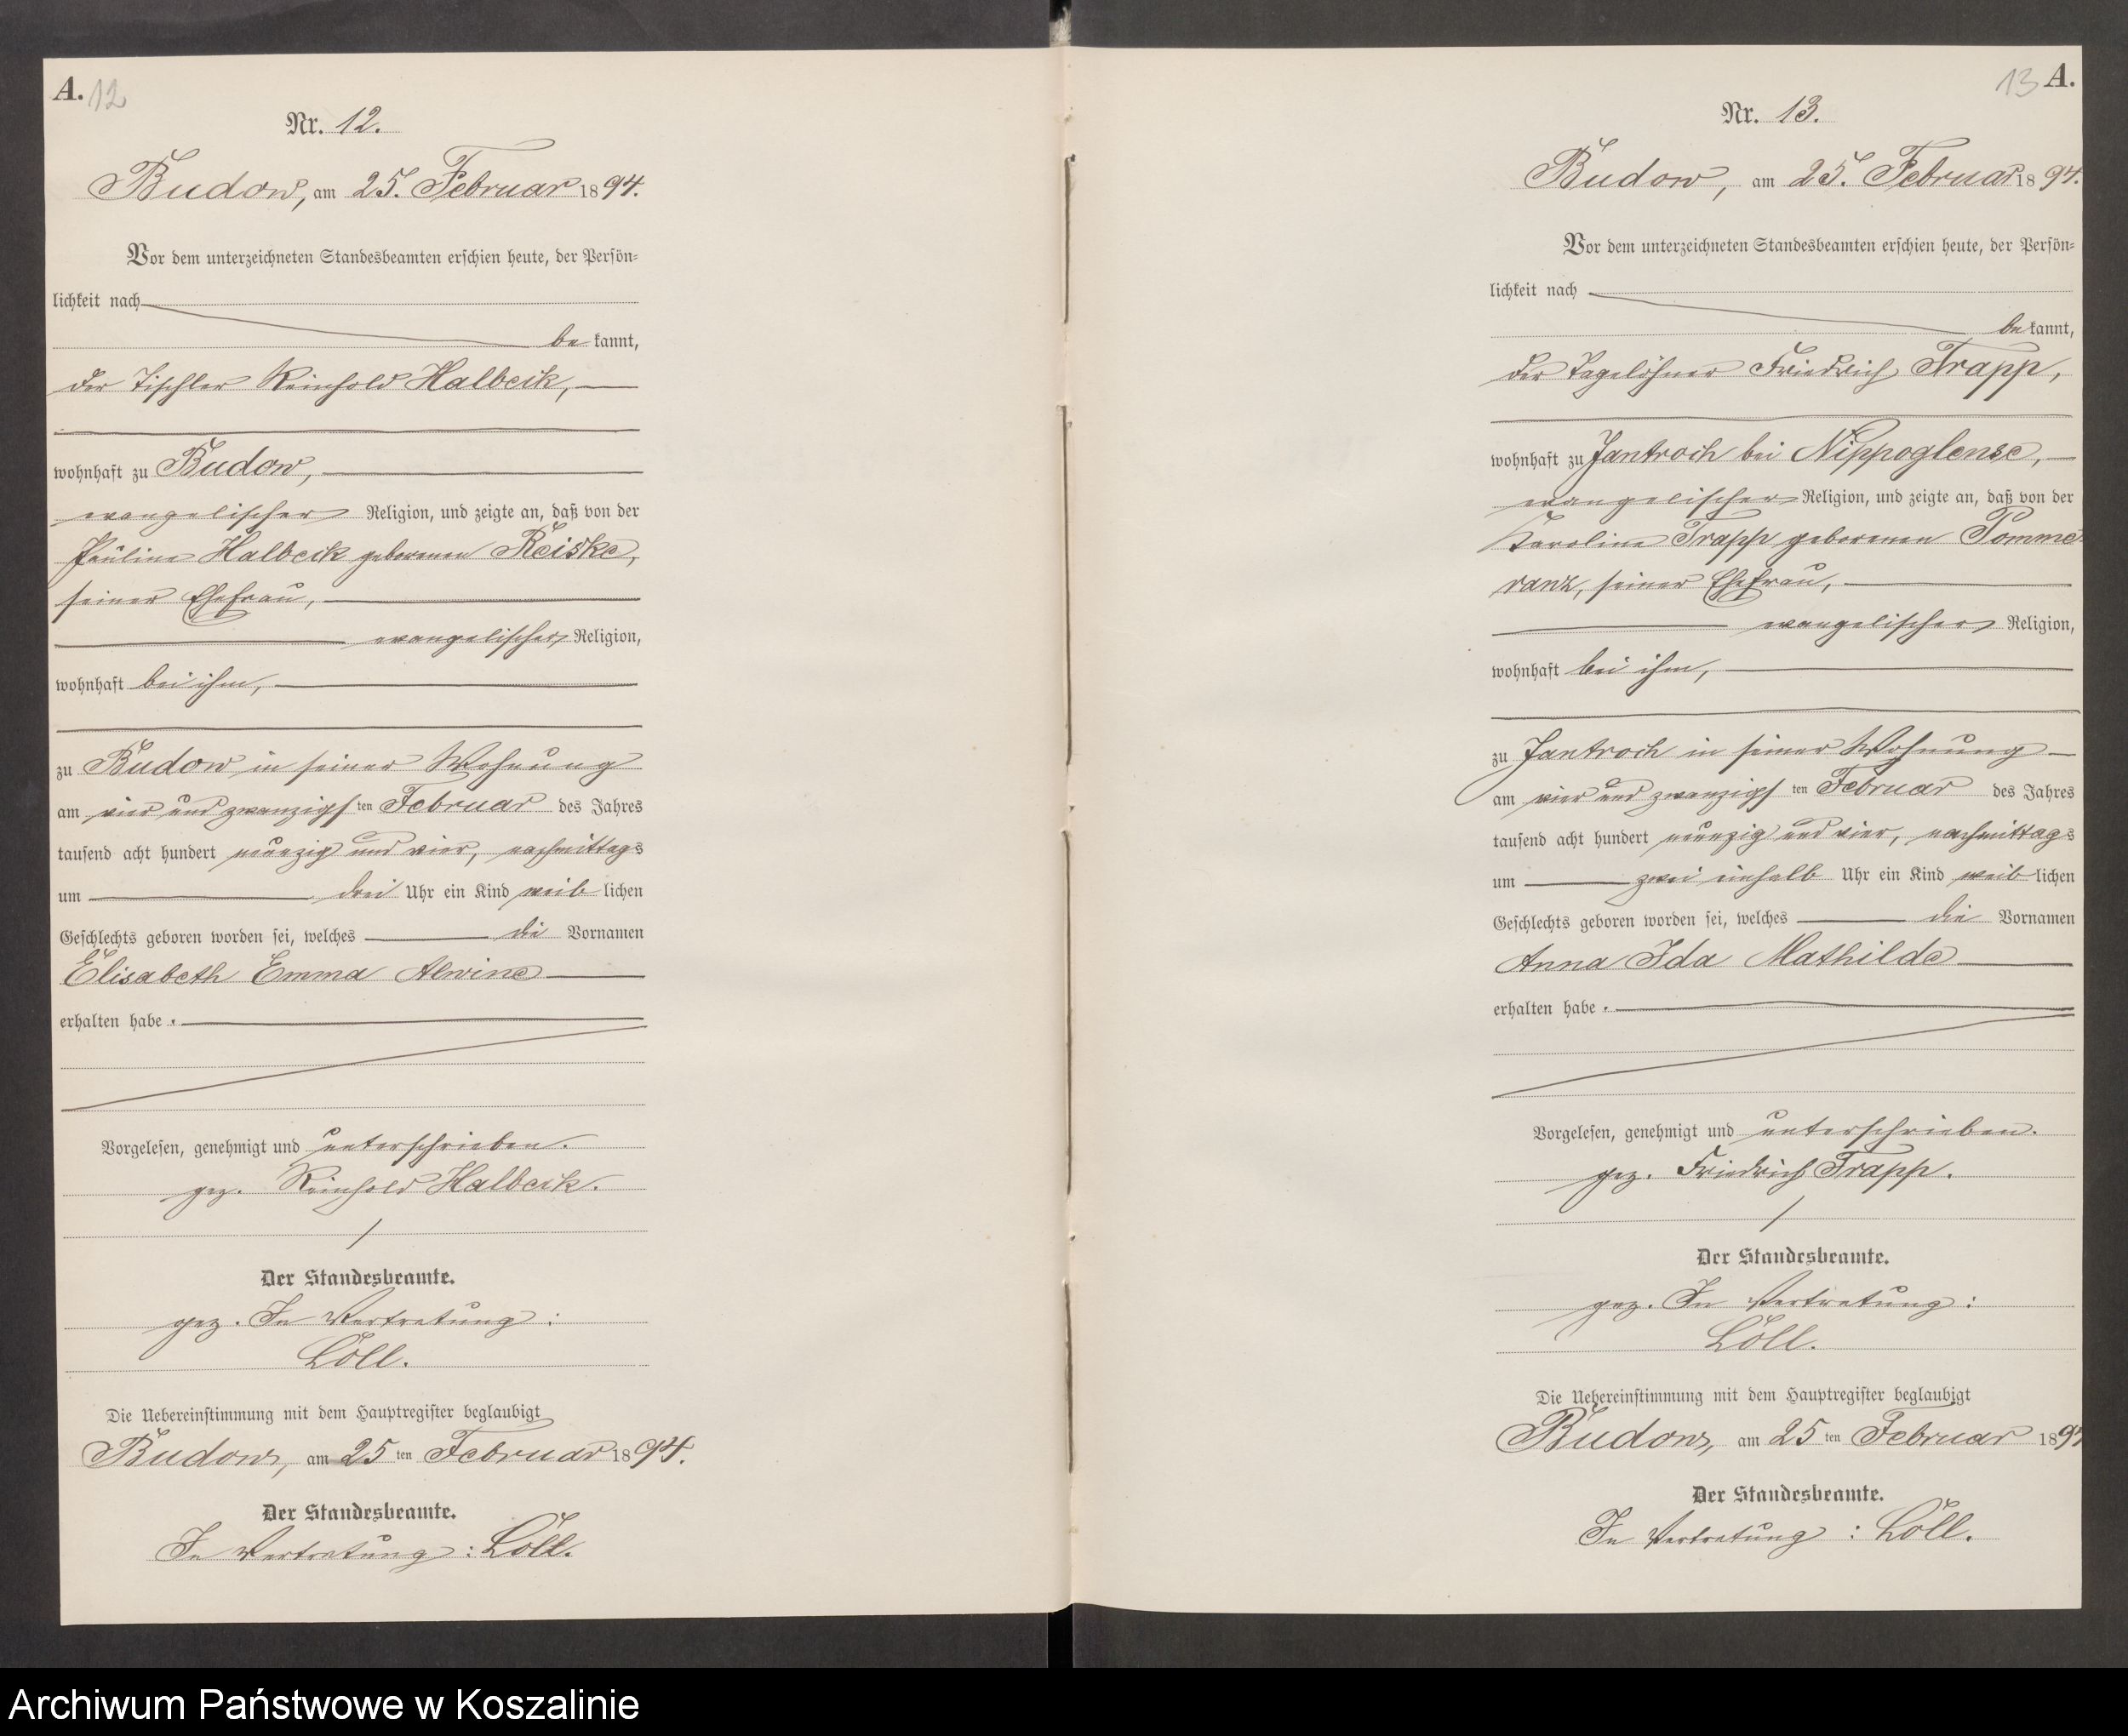 A. 12
Nr. 12.
Budow, am 25. Februar 1894.
Vor dem unterzeichneten Standesbeamten erschien heute, der Persön-
lichkeit nach
be kannt,
der Tischler Reinhold Halbeik,
wohnhaft zu Budow,
evangelischer Religion, und zeigte an, daß von der
Pauline Halbeik geborenen Reiske,
seiner Ehefrau,
evangelischer Religion,
wohnhaft bei ihm,
zu Budow in seiner Wohnung
am vier und zwanzigsten Februar des Jahres
tausend acht hundert neunzig und vier, nachmittags
um drei Uhr ein Kind weiblichen
Geschlechts geboren worden sei, welches die Vornamen
Elisabeth Emma Alwine
erhalten habe.
Vorgelesen, genehmigt und unterschrieben.
gez. Reinhold Halbeik.
Der Standesbeamte.
gez. In Vertretung:
Löll.
Die Uebereinstimmung mit dem Hauptregister beglaubigt
Budow, am 25ten Februar 1894.
Der Standesbeamte.
In Vertretung: Löll.
13 A.
Nr. 13.
Budow, am 25. Februar 1894.
Vor dem unterzeichneten Standesbeamten erschien heute, der Persön-
lichkeit nach
be kannt,
der Tagelöhner Friedrich Trapp,
wohnhaft zu Jantroch bei Nippoglense,
evangelischer Religion, und zeigte an, daß von der
Karoline Trapp geborenen Pomme-
ranz, seiner Ehefrau,
evangelischer Religion,
wohnhaft bei ihm,
zu Jantroch in seiner Wohnung
am vier und zwanzigsten Februar des Jahres
tausend acht hundert neunzig und vier, nachmittags
um zwei einhalb Uhr ein Kind weiblichen
Geschlechts geboren worden sei, welches die Vornamen
Anna Ida Mathilde
erhalten habe.
Vorgelesen, genehmigt und unterschrieben.
gez. Friedrich Trapp.
Der Standesbeamte.
gez. In Vertretung:
Löll.
Die Uebereinstimmung mit dem Hauptregister beglaubigt
Budow, am 25ten Februar 1894
Der Standesbeamte.
In Vertretung: Löll.
Archiwum Państwowe w Koszalinie